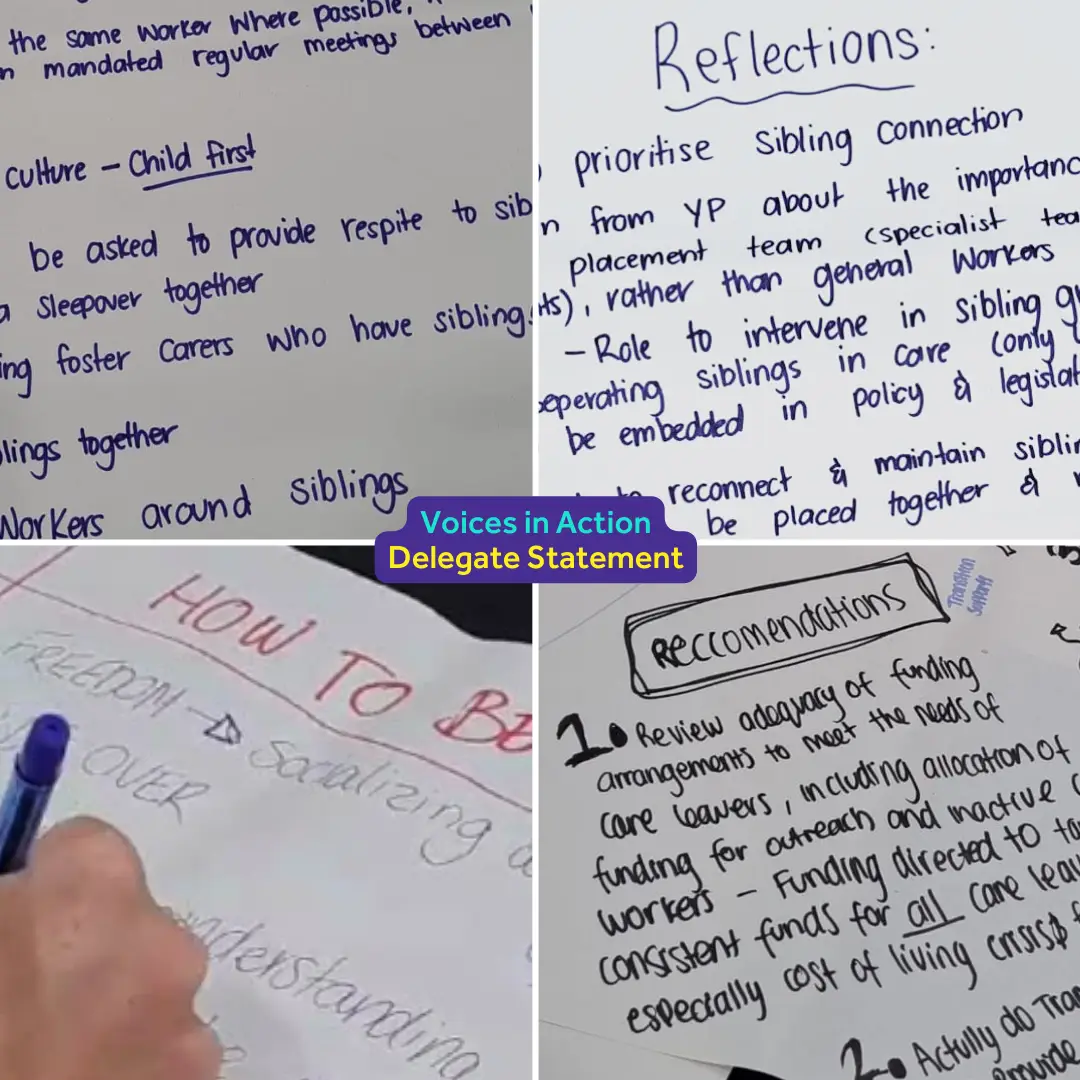 the same worker where possible,
mandated regular meetings between
culture – Child first
be asked to provide respite to sib
a sleepover together
ing foster carers who have sibling
lings together
Workers around siblings
Reflections:
prioritise sibling connection
n from YP about the importanc
placement team (specialist tea
ts), rather than general workers
– Role to intervene in sibling g
seperating siblings in care (only
be embedded in policy & legislat
reconnect & maintain siblin
be placed together &
Voices in Action
Delegate Statement
HOW TO BE
FREEDOM → Socializing
OVER
understanding
Transition
Supports
Reccomendations
1. Review adequacy of funding
arrangements to meet the needs of
care leavers, including allocation of
funding for outreach and inactive
workers – Funding directed to
consistent funds for all care leav
especially cost of living crisis$
2. Actully do Tran
Provide